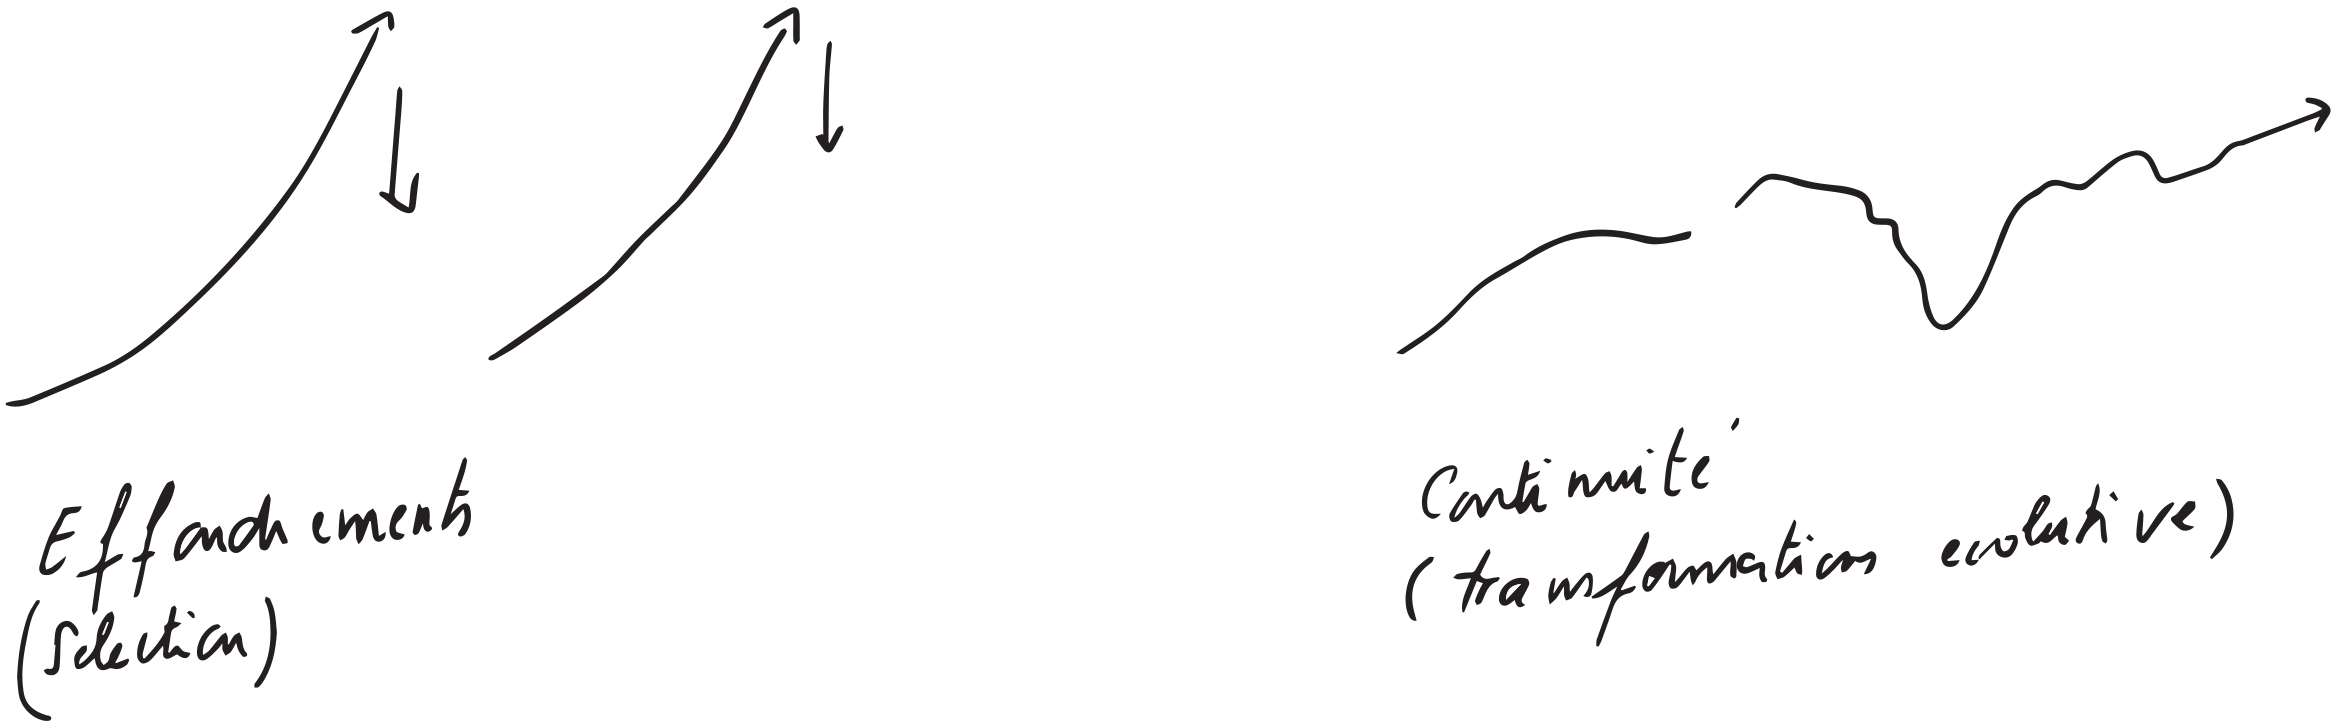 Effondrements
(Sélection)
Continuité
(transformations évolutive)